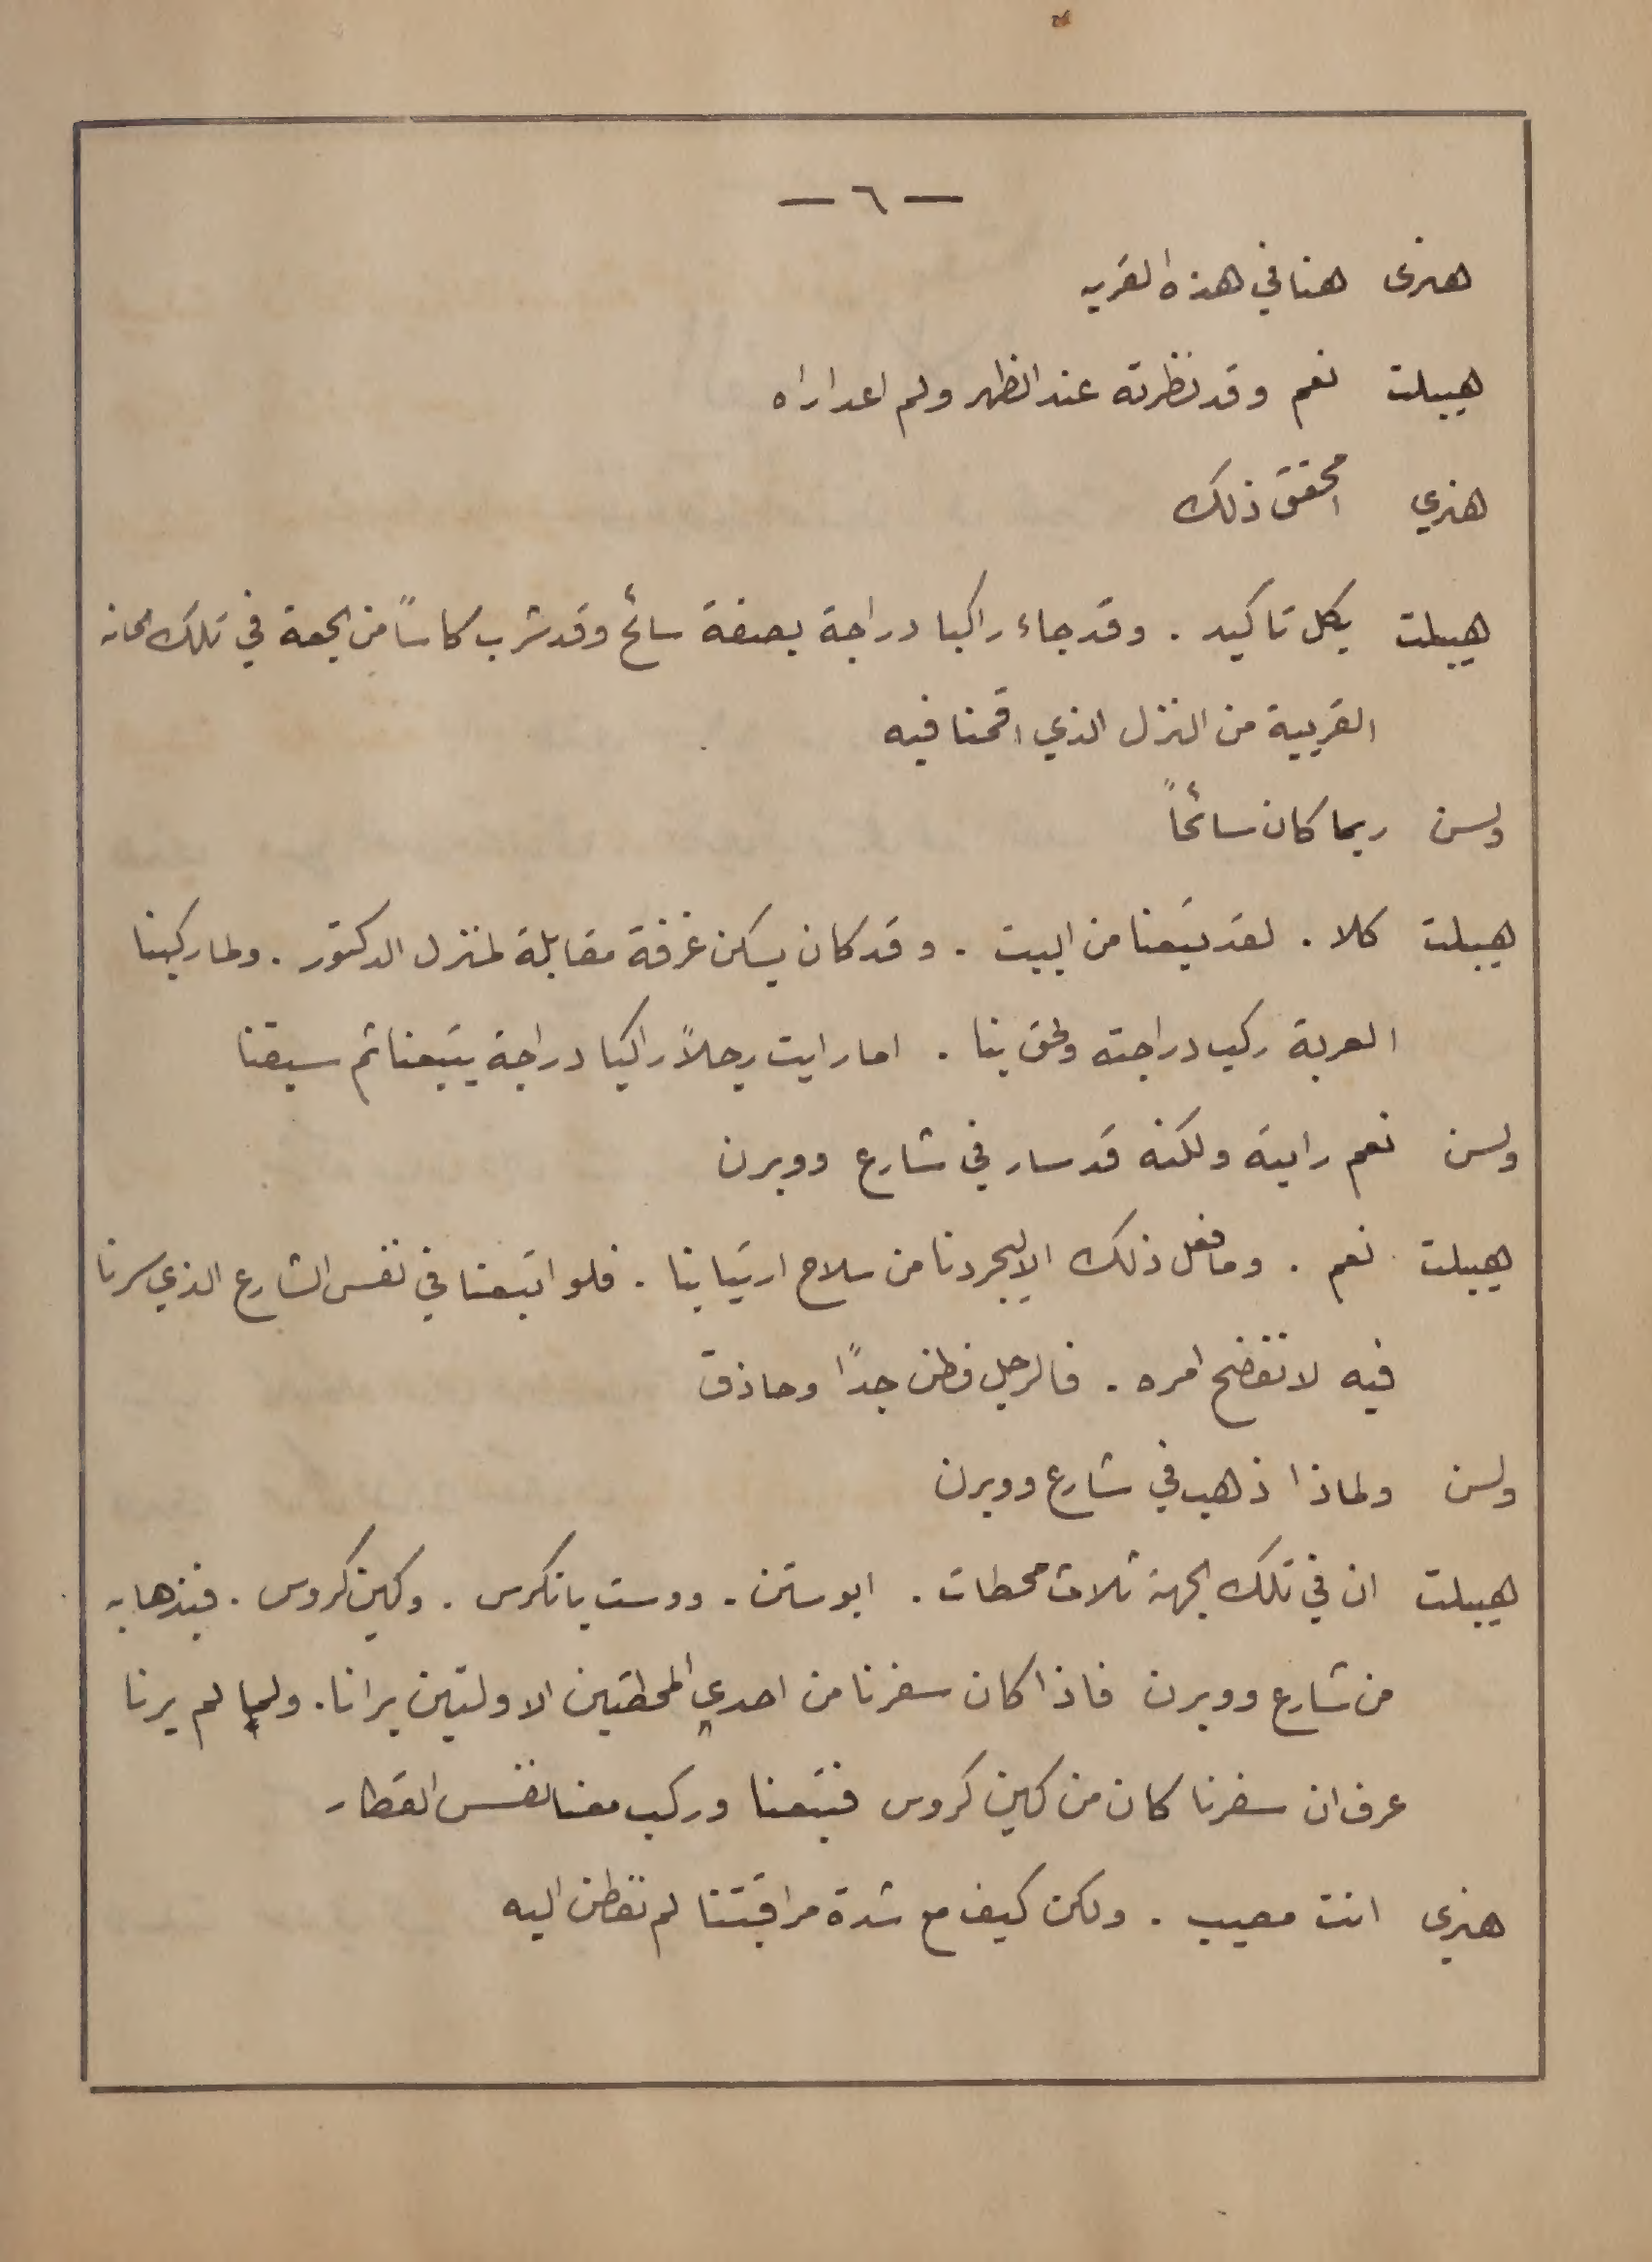 — ٦ —
هنرى هنا في هذه القريه
هيبلت نعم وقد نظرته عند الظهر ولم اعد اراه
هنري امحقق ذلك
هيبلت بكل تاكيد . وقد جاء راكبا دراجة بصفة سائح وقد شرب كاساً من الجعة في تلك الحانه
القريبة من النزل الذي اقمنا فيه
ولسن ربما كان سائحاً
هيبلت كلا . لقد تبعنا من البيت . وقد كان يسكن غرفة مقابلة لمنزل الدكتور . ولما ركبنا
العربة ركب دراجته ولحق بنا . اما رايت رجلاً راكبا دراجة يتبعنا ثم سبقنا
ولسن نعم رايته ولكنه قد سار في شارع ووبرن
هيبلت نعم . وما فعل ذلك الا ليجردنا من سلاح ارتيابنا . فلو اتبعنا في نفس الشارع الذي سرنا
فيه لانفضح امره . فالرجل فطن جدًا وحاذق
ولسن ولماذا ذهب في شارع ووبرن
هيبلت ان في تلك الجهة ثلاث محطات . ايوستن . ووست بانكرس . وكين كروس . فبذهابه
من شارع ووبرن فاذا كان سفرنا من احدي المحطتين الاولتين يرانا . ولما لم يرنا
عرف ان سفرنا كان من كين كروس فتبعنا وركب معنا نفس القطار
هنري انت مصيب . ولكن كيف مع شدة مراقبتنا لم نفطن اليه